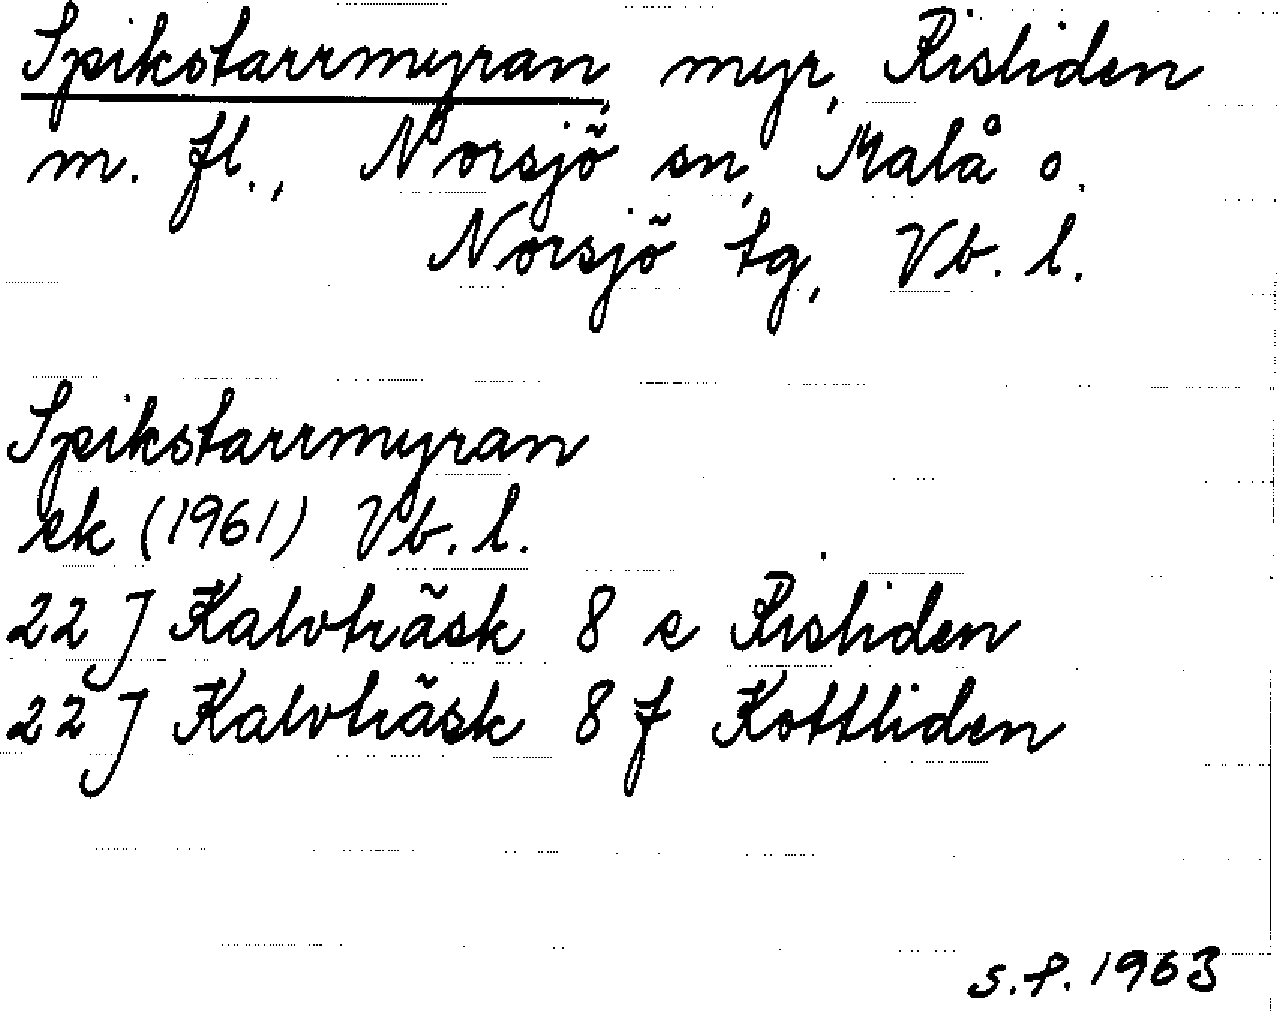 Spikstarrmyran, myr, Risliden
m. fl., Norsjö sn, Malå o.
Norsjö tg, Vb. l.
Spikstarrmyran
ek (1961) Vb. l.
22 J Kalvträsk 8 e Risliden
22 J Kalvträsk 8 f Kottliden
S.P. 1963